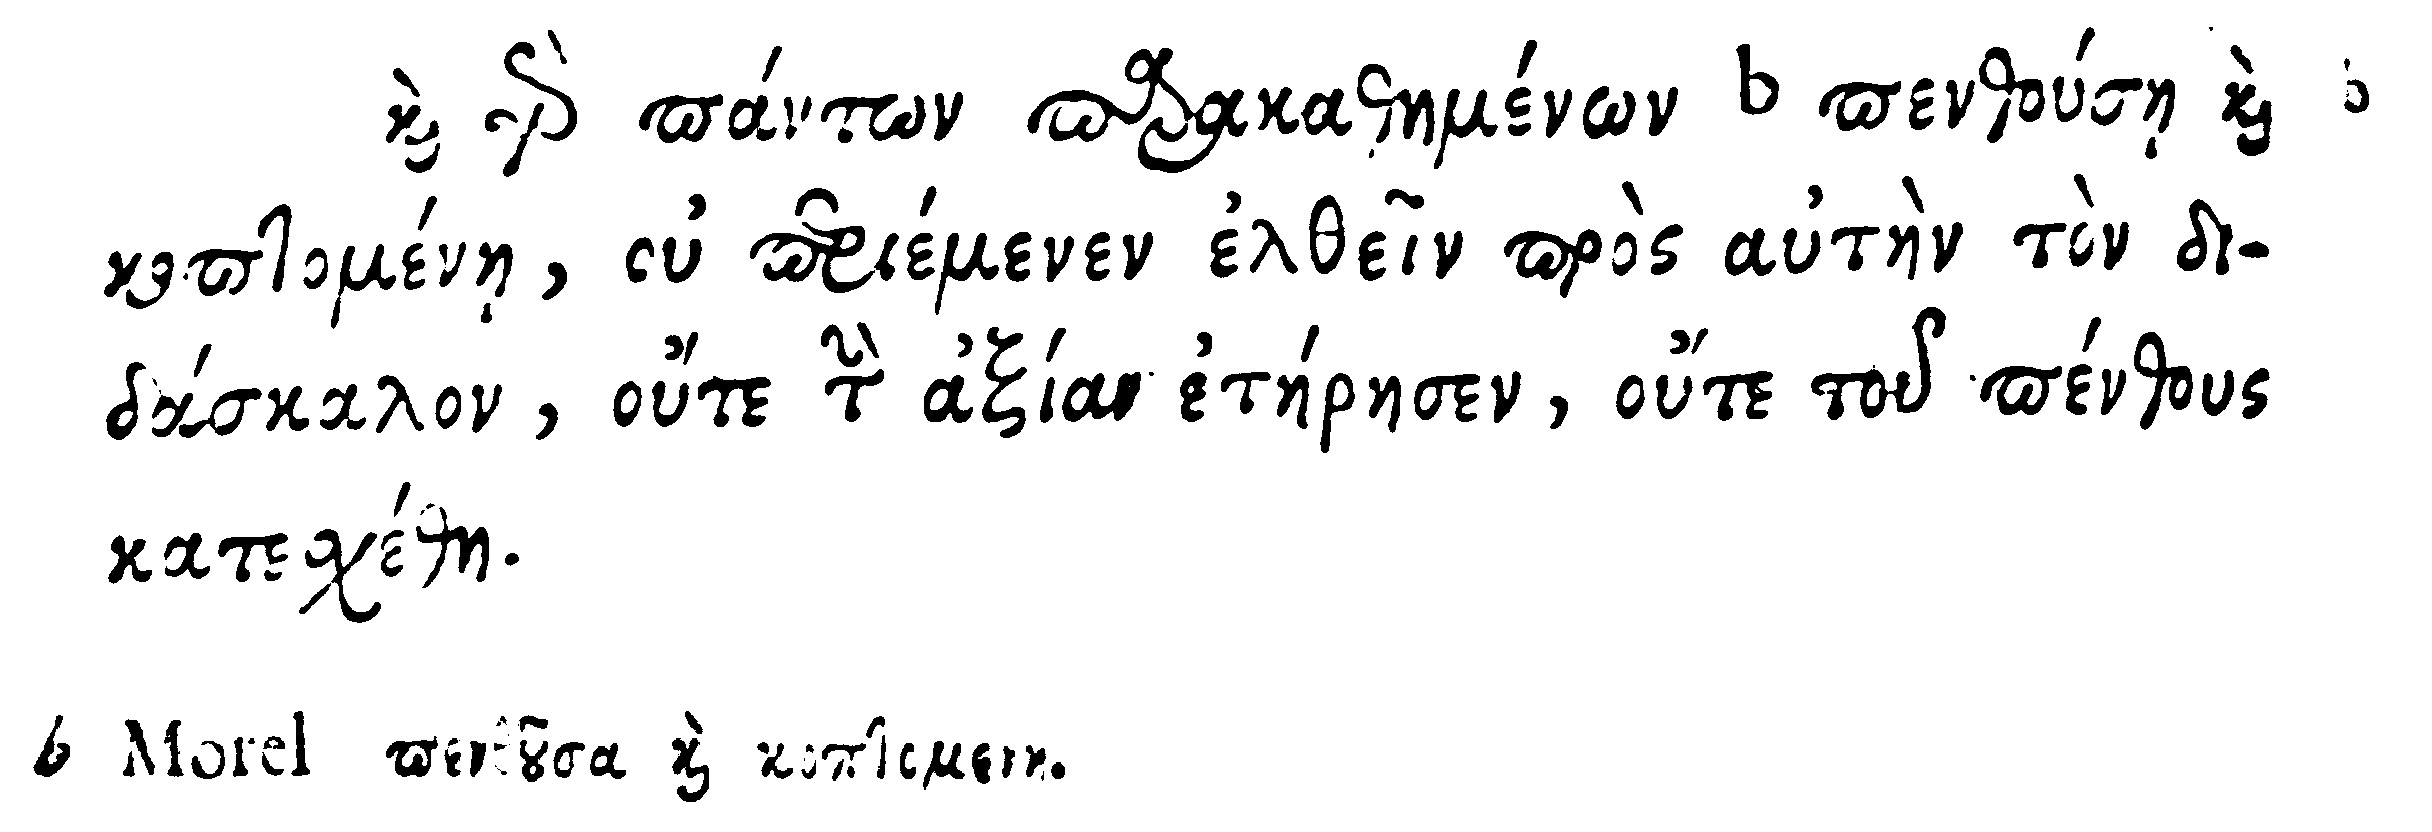 καὶ γὰρ πάντων παρακαθημένων b πενθούσῃ καὶ b
κοπτομένῃ, οὐ περιέμενεν ἐλθεῖν πρὸς αὐτὴν τὸν δι-
δάσκαλον, οὔτε τὴν ἀξίαν ἐτήρησεν, οὔτε τοῦ πένθους
κατεσχέθη.
b Morel πενθοῦσα καὶ κοπτομενη.